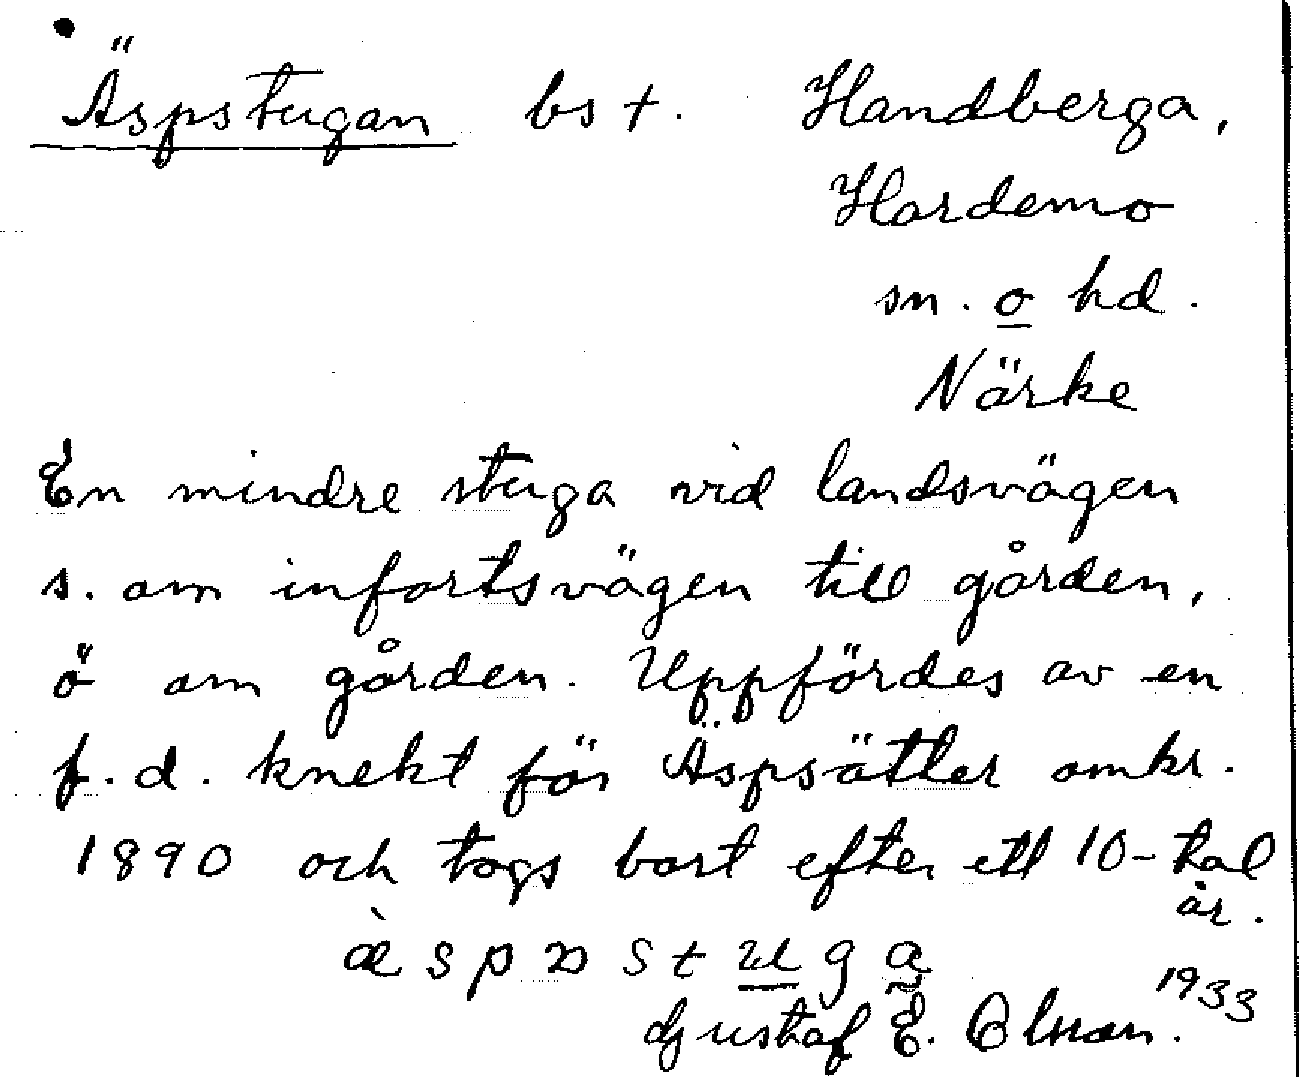 Äspstugan bs †. Handberga,
Hardemo
sn. o hd.
Närke
En mindre stuga vid landsvägen
s. om infartsvägen till gården,
ö om gården. Uppfördes av en
f.d. knekt för Äspsätter omkr.
1890 och togs bort efter ett 10-tal
år.
Gustaf E. Olsson. 1933